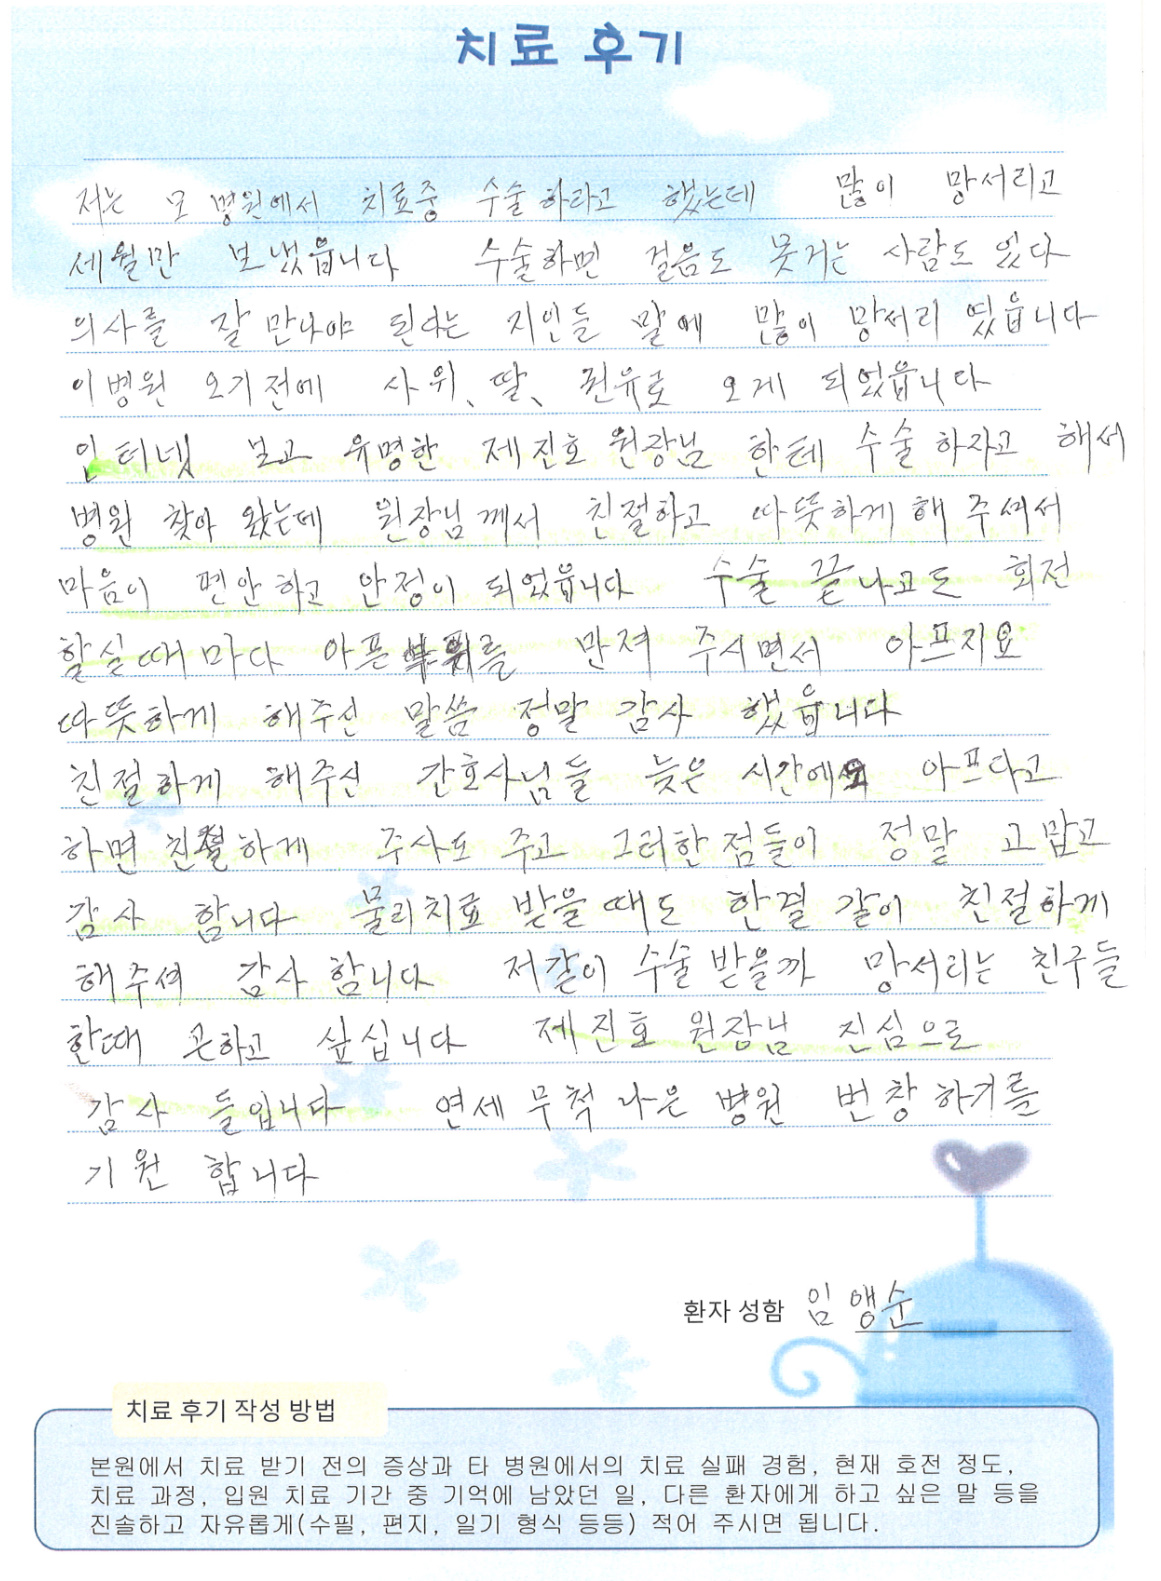 치료 후기
저는 모 병원에서 치료중 수술 하라고 했는데 많이 망서리고
세월만 보냈읍니다 수술하면 걸음도 못거는 사람도 있다
의사를 잘 만나야 된다는 지인들 말에 많이 망서리 였읍니다
이병원 오기전에 사위, 딸, 권유로 오게 되었읍니다
인터넷 보고 유명한 제진호 원장님 한테 수술 하자고 해서
병원 찾아 왔는데 원장님 께서 친절하고 따뜻하게 해 주셔서
마음이 편안 하고 안정이 되었읍니다 수술 끝나고도 회전
할실 때 마다 아픈 부위를 만져 주시면서 아프지요
따뜻하게 해주신 말씀 정말 감사 했읍니다
친절하게 해주신 간호사님들 늦은 시간에요 아프다고
하면 친절하게 주사도 주고 그러한 점들이 정말 고맙고
감사 합니다 물리치료 받을 때도 한결 같이 친절하게
해주셔 감사 합니다 저같이 수술 받을까 망서리는 친구들
한때 곤하고 싶십니다 제진호 원장님 진심으로
감사 들입니다 연세 무척 나은 병원 번창 하기를
기원 합니다
환자 성함 임앵순
치료 후기 작성 방법
본원에서 치료 받기 전의 증상과 타 병원에서의 치료 실패 경험, 현재 호전 정도,
치료 과정, 입원 치료 기간 중 기억에 남았던 일, 다른 환자에게 하고 싶은 말 등을
진솔하고 자유롭게(수필, 편지, 일기 형식 등등) 적어 주시면 됩니다.